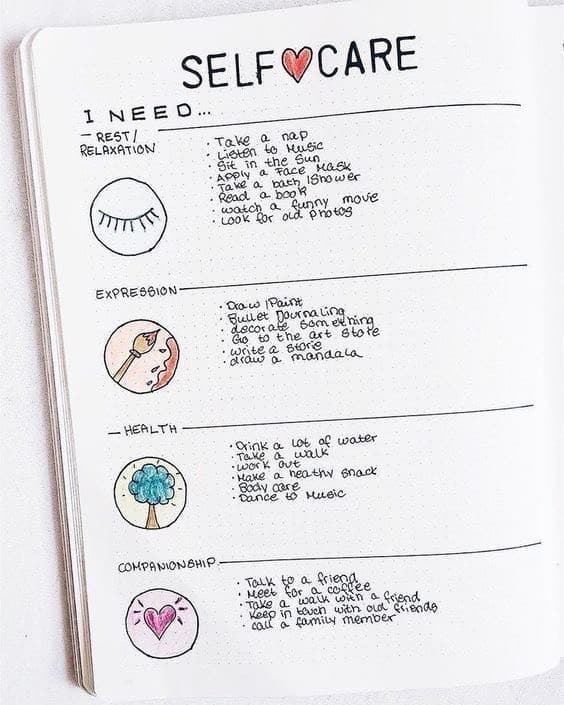 SELF CARE
I NEED...
- REST/
RELAXATION
· Take a nap
· Listen to Music
· Sit in the Sun
· Apply a Face Mask
· Take a bath /Shower
· Read a book
· watch a funny movie
· Look for old photos
EXPRESSION
· Draw /Paint
· Bullet Journaling
· decorate something
· Go to the art store
· write a storie
· draw a mandala
- HEALTH
· Drink a lot of water
· Take a walk
· work out
· Make a heathy snack
· Body care
· Dance to Music
COMPANIONSHIP
· Talk to a friend
· Meet for a coffee
· Take a walk with a friend
· Keep in touch with old friends
· call a family member